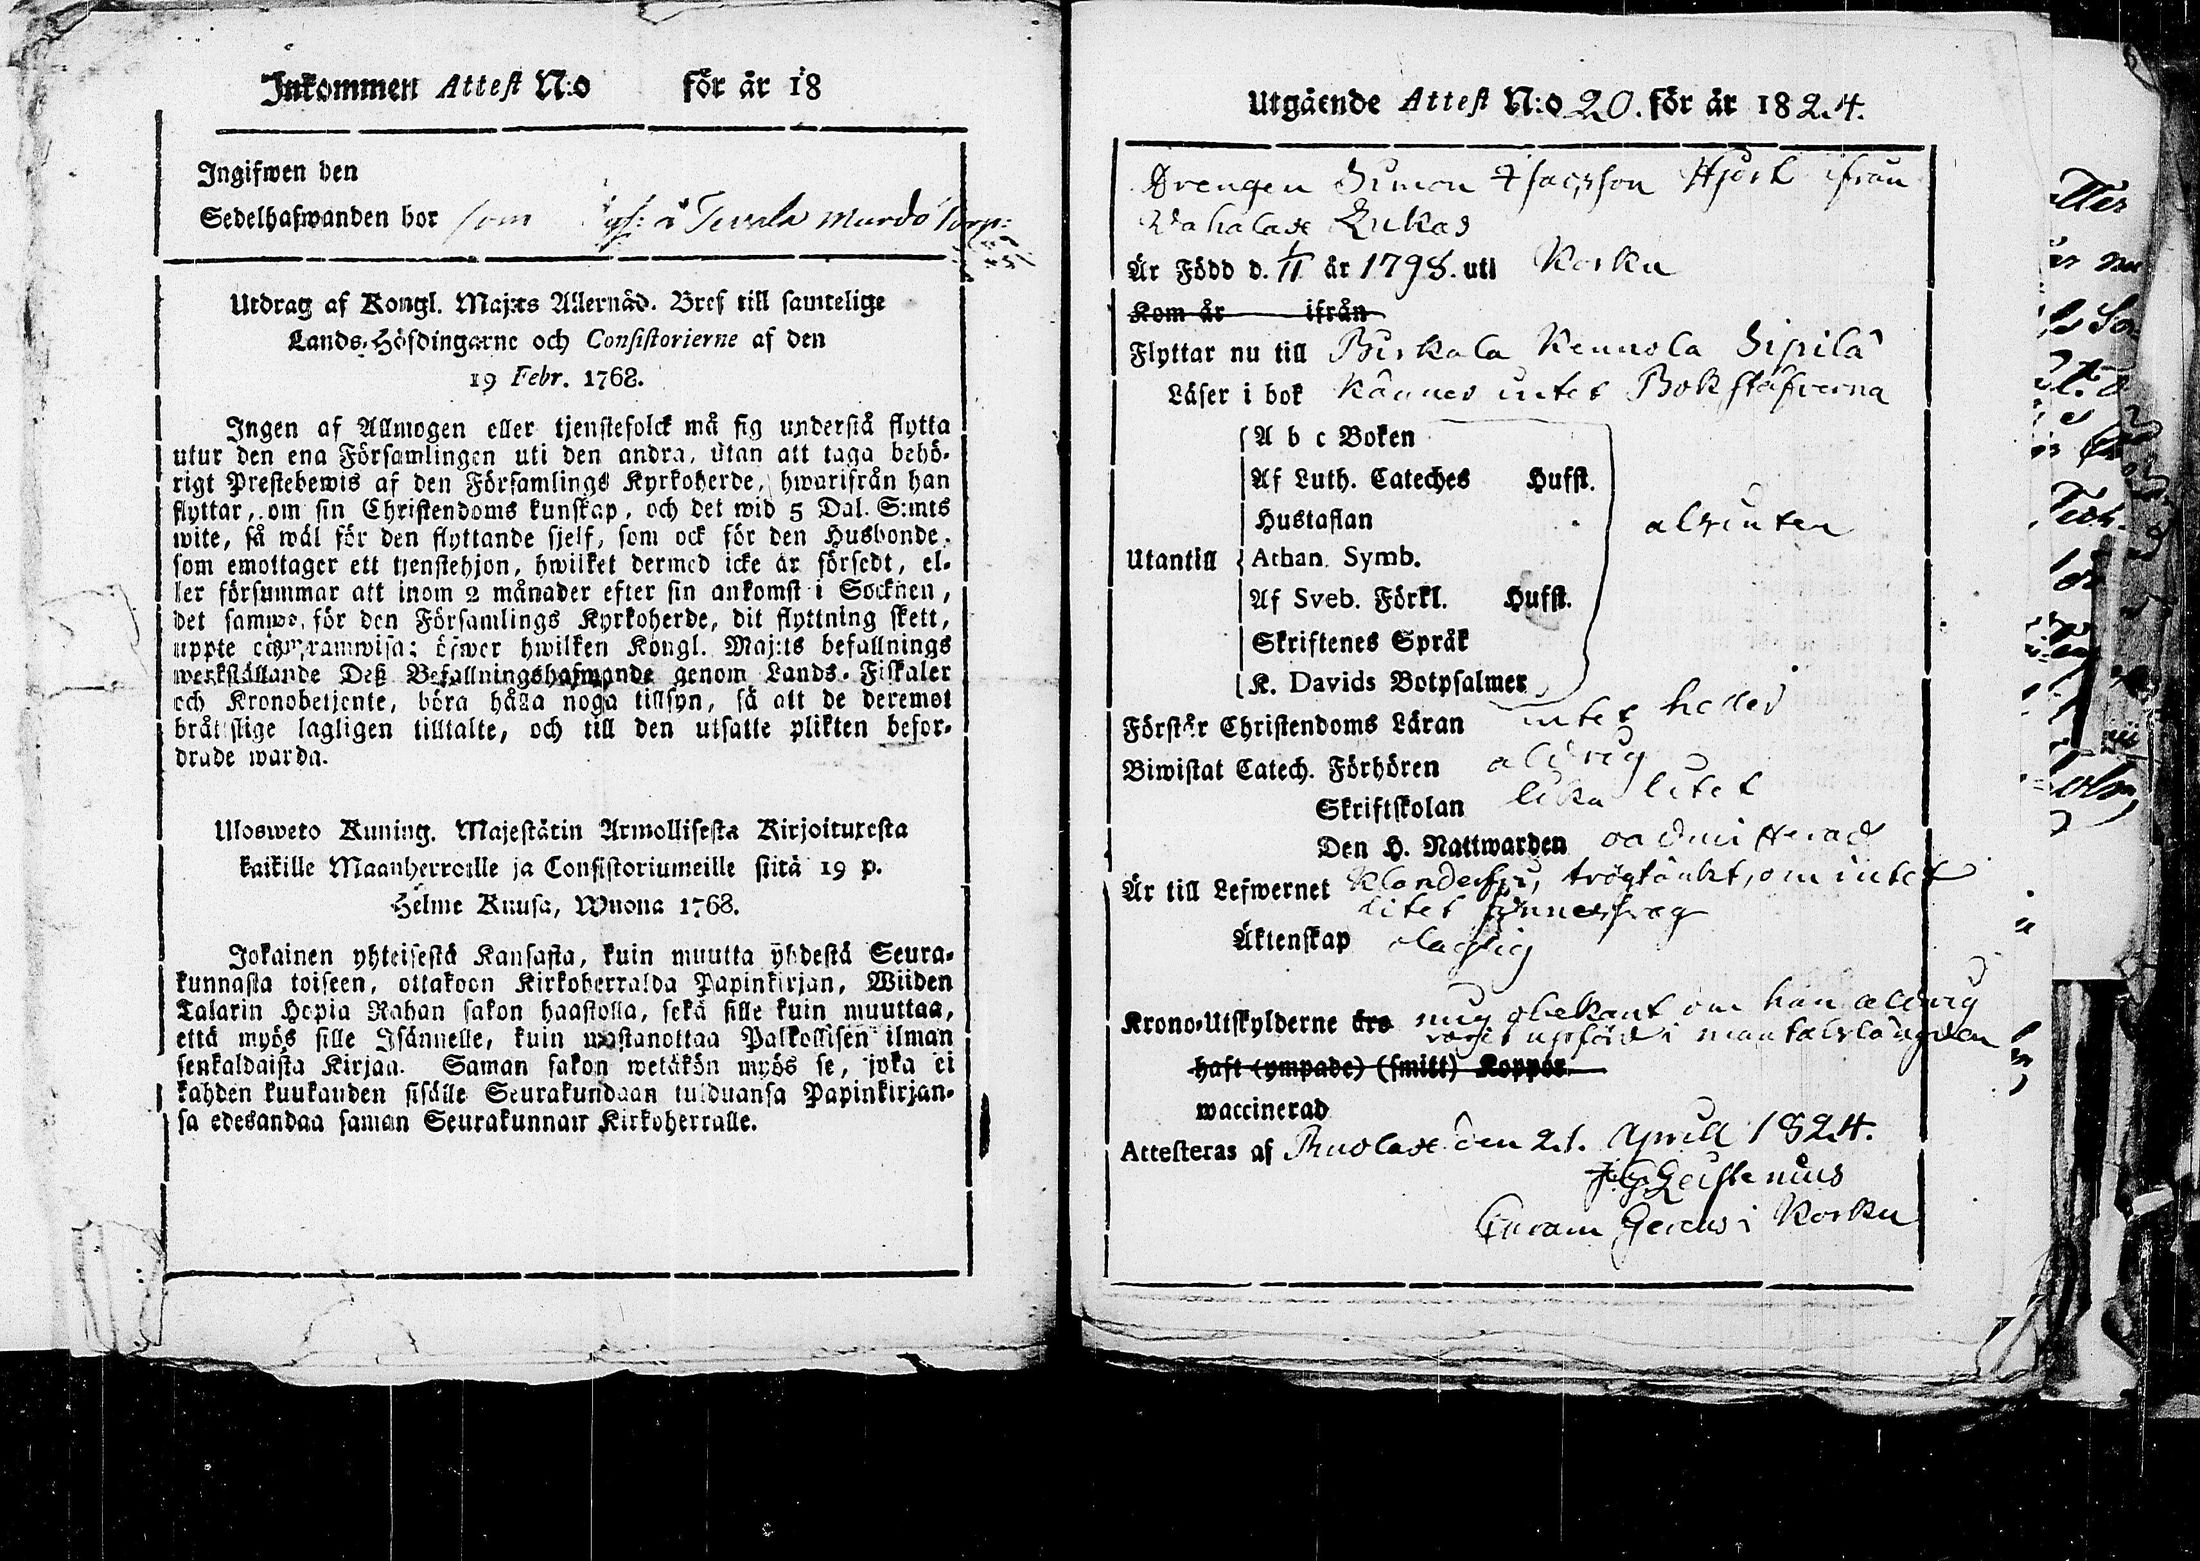 Inkommen Attest N:o för år 18
Ingifwen den
Sedelhafwanden bor som å Tevala Murdo Torp:
Utdrag af Kongl. Maj:ts Allernåd. Bref till samtelige
Lands-Höfdingarne och Consistorierne af den
19 Febr. 1768.
Ingen af Allmogen eller tjenstefolck må sig understå flytta
utur den ena Församlingen uti den andra, utan att taga behö-
rigt Prestebewis af den Församlings Kyrkoherde, hwarifrån han
flyttar, om sin Christendoms kunskap, och det wid 5 Dal. S:mts
wite, så wäl för den flyttande sjelf, som ock för den Husbonde,
som emottager ett tjenstehjon, hwilket dermed icke är försedt, el-
ler försummar att inom 2 månader efter sin ankomst i Socknen,
det samma, för den Församlings Kyrkoherde, dit flyttning skett,
uppte och framwisa; öfwer hwilken Kongl. Maj:ts befallnings
werkställande Deß Befallningshafwande genom Lands-Fiskaler
och Kronobetjente, böra hålla noga tillsyn, så att de deremot
bråttslige lagligen tilltalte, och till den utsatte plikten befor-
drade warda.
Ulosweto Kuning. Majestätin Armollisesta Kirjoituxesta
kaikille Maanherroille ja Consistoriumeille siitä 19 p.
Helme Kuusa, Wuona 1768.
Jokainen yhteisestä Kansasta, kuin muutta yhdestä Seura-
kunnasta toiseen, ottakoon Kirkoherralda Papinkirjan, Wiiden
Talarin Hopia Rahan sakon haastolla, sekä sille kuin muuttaa,
että myös sille Isännelle, kuin wastanottaa Palkollisen ilman
senkaldaista Kirjaa. Saman sakon wetäkön myös se, joka ei
kahden kuukauden sisälle Seurakundaan tulduansa Papinkirjan-
sa edesandaa saman Seurakunnan Kirkoherralle.
Utgående Attest N:o 20. för år 1824.
Drengen Simon Isacsson Hjort ifrån
Wahalax Lukas
Är Född d. 1/11 år 1798. uti Korku
Kom år ifrån
Flyttar nu till Birkala Kennola Sipilä
Läser i bok Känner intet Bokstäfverna
A b c Boken
Af Luth. Cateches Hufst.
Hustaflan
alsintet
Utantill Athan. Symb.
Af Sveb. Förkl. Hufst.
Skriftenes Språk
K. Davids Botpsalmer
Förstår Christendoms Läran intet heller
Biwistat Catech. Förhören aldrig
Skriftskolan lika litet
Den H. Nattwarden oadmitterad
Är till Lefwernet trögtänkt, om intet
litet
Äktenskap olaglig
Krono-Utskylderne äro mig obekant om han aldrig
varit upförd i mantalslängden
haft (ympade) (smitt) Koppor
waccinerad
Attesteras af Ruolax den 21. April 1824.
J. G. Geistenius
Curam Gerens i Korku